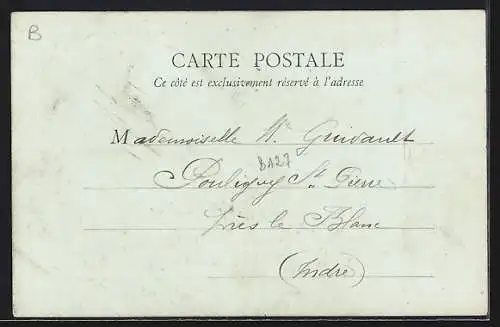 B
CARTE POSTALE
Ce côté est exclusivement réservé à l'adresse
Mademoiselle Guivault
B127
Pouligny St Pierre
près le Blanc
(Indre)